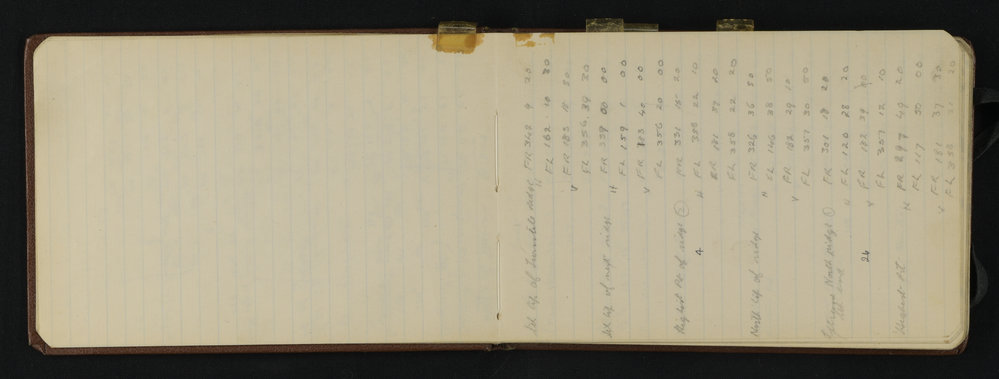 Sth tip of ridge H FR 342 9 20
FL 162 10 30
V FR 183 18 50
FL 356 39 30
Sth tip of next ridge H FR 339 00 00
FL 159 1 00
V FR 183 40 00
FL 356 20 00
Highest Pt of ridge ② FR 331 15 20
4 H FL 22 10
FR 181 37 10
FL 358 22 20
North tip of ridge FR 326 36 50
H FL 146 38 50
V FR 182 29 10
FL 357 30 50
North ridge ① FR 301 18 20
Sth end H FL 120 28 20
24 V FR 182 39
FL 357 12 10
Highest Pt H FR 297 49 20
FL 117 50 00
V FR 181 37 30
FL 358 21 20